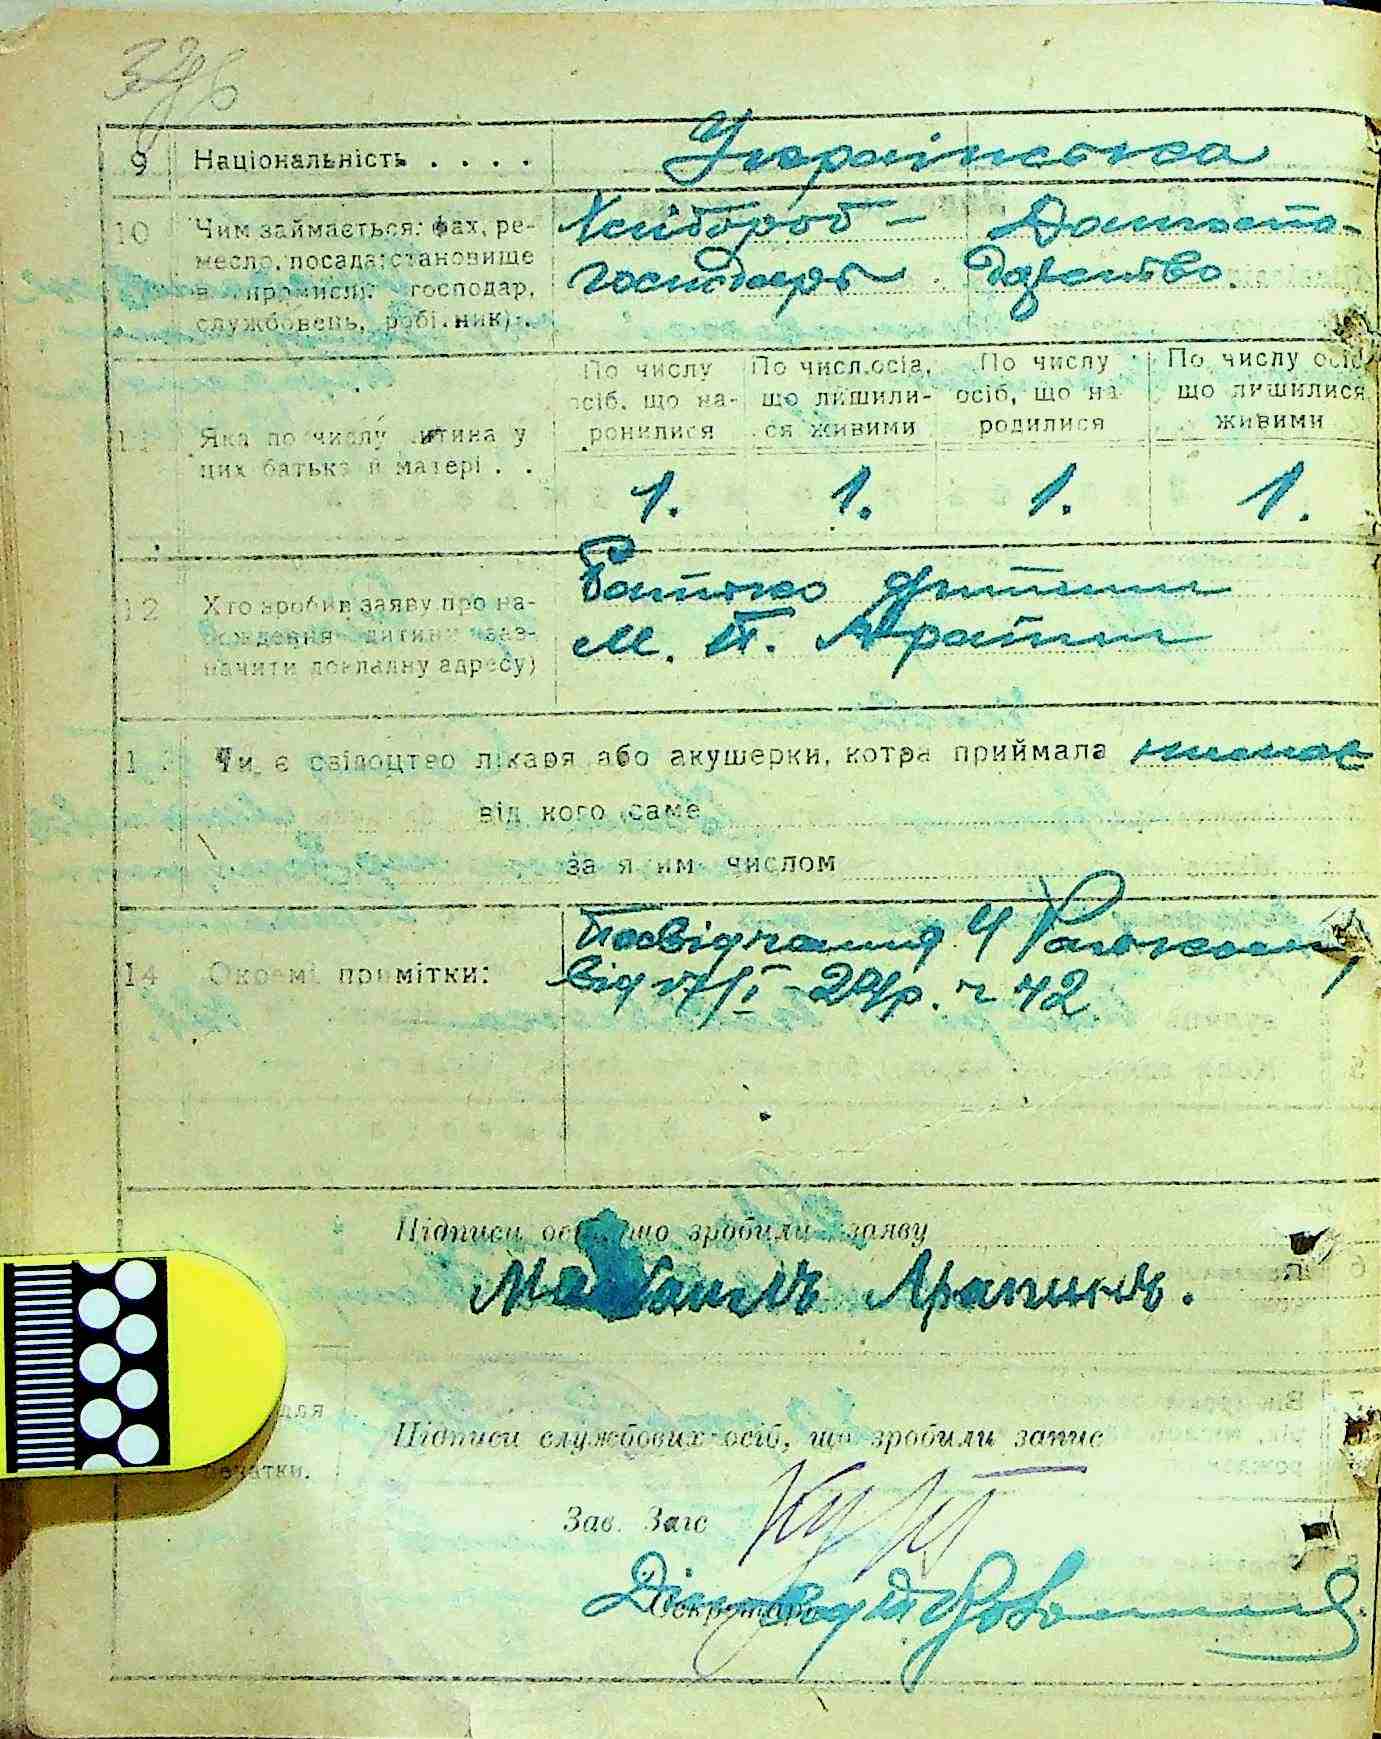 9 Національність . . . . Українська
10 Чим займається: фах, ре-
месло, посада; становище
в промислі: господар,
службовець, робітник) .
Хлібороб –
господарь
Домогоспо-
дарство.
11 Яка по числу дитина у
цих батька й матері . .
По числу
осіб, що на-
родилися
По числ.осіб,
що лишили-
ся живими
По числу
осіб, що на
родилися
По числу осіб
що лишилися
живими
1. 1. 1. 1.
12 Хто зробив заяву про на-
рождення дитини (заз-
начити докладну адресу)
Батько дитини
М. П. Арапин
13 Чи є свідоцтво лікаря або акушерки, котра приймала немає
від кого саме
за яким числом
14 Окремі примітки:
Посвідчання
від 17/I – 29р. ч 42
Підписи осіб, що зробили заяву
Арапинъ.
для
печатки.
Підписи службових осіб, що зробили запис
Зав. Загс
Секретарь